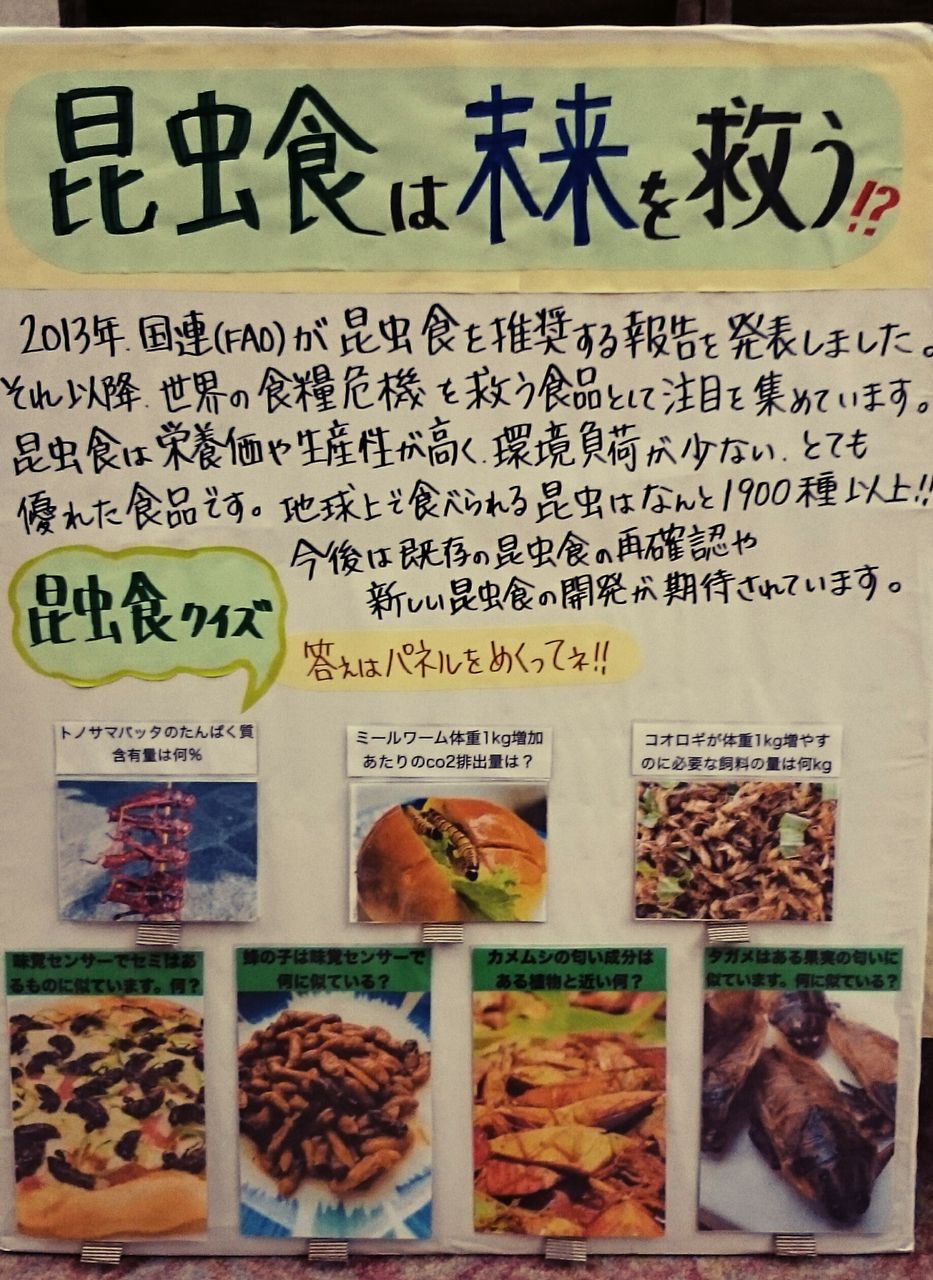 昆虫食は未来を救う!?
2013年、国連(FAO)が昆虫食を推奨する報告を発表しました。
それ以降、世界の食糧危機を救う食品として注目を集めています。
昆虫食は栄養価や生産性が高く、環境負荷が少ない、とても
優れた食品です。地球上で食べられる昆虫はなんと1900種以上!!
今後は既存の昆虫食の再確認や
新しい昆虫食の開発が期待されています。
昆虫食クイズ
答えはパネルをめくってネ!!
トノサマバッタのたんぱく質
含有量は何%
ミールワーム体重1kg増加
あたりのco2排出量は?
コオロギが体重1kg増やす
のに必要な飼料の量は何kg
味覚センサーでセミはあ
るものに似ています。何?
蜂の子は味覚センサーで
何に似ている?
カメムシの匂い成分は
ある植物と近い何?
タガメはある果実の匂いに
似ています。何に似ている?